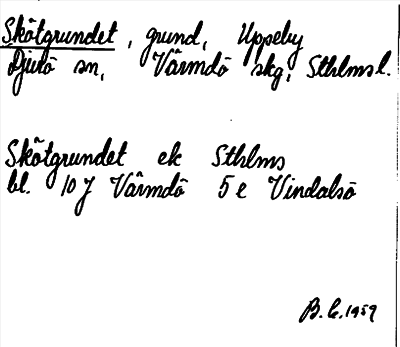 Skötgrundet, grund, Uppeby
Djurö sn, Värmdö skg, Sthlms l.
Skötgrundet ek Sthlms
bl. 10 J Värmdö 5 e Vindalsö
B. C. 1959